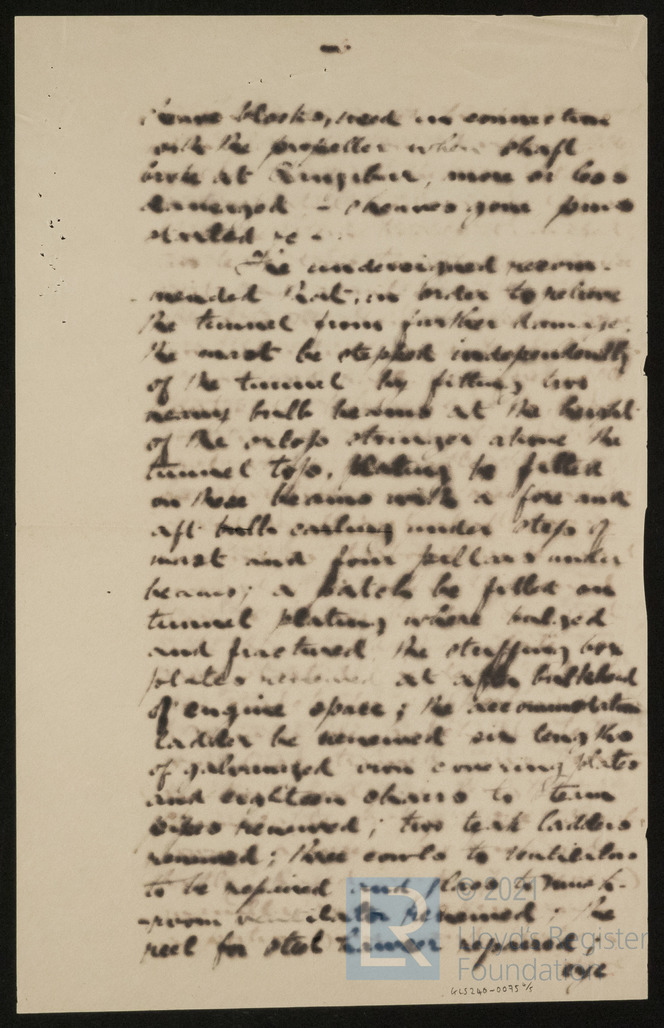 blocks, used in connection
with the propeller when shaft
broke at more or less
damaged - sheaves gone pins
started &c -
The undersigned recom-
mended that, in order to relieve
the tunnel from further damage,
the mast be stepped independently
of the tunnel by fitting two
heavy bulb beams at the height
of the orlop stringer above the
tunnel top, plating to be fitted
on these beams with a fore and
aft bulb carling under step of
mast and four pillars under
beams; a patch be fitted on
tunnel plating where bulged
and fractured the stuffing box
plates renewed at after bulkhead
of engine space; the accommodation
ladder be renewed six lengths
of galvanized iron covering plates
and eighteen chairs to steam
pipes renewed; two teak ladders
renewed; three cowls to ventilators
to be repaired and glass to
-room renewed; the
reel for steel hawser repaired;
eye
© 2021
Lloyd's Register
Foundation